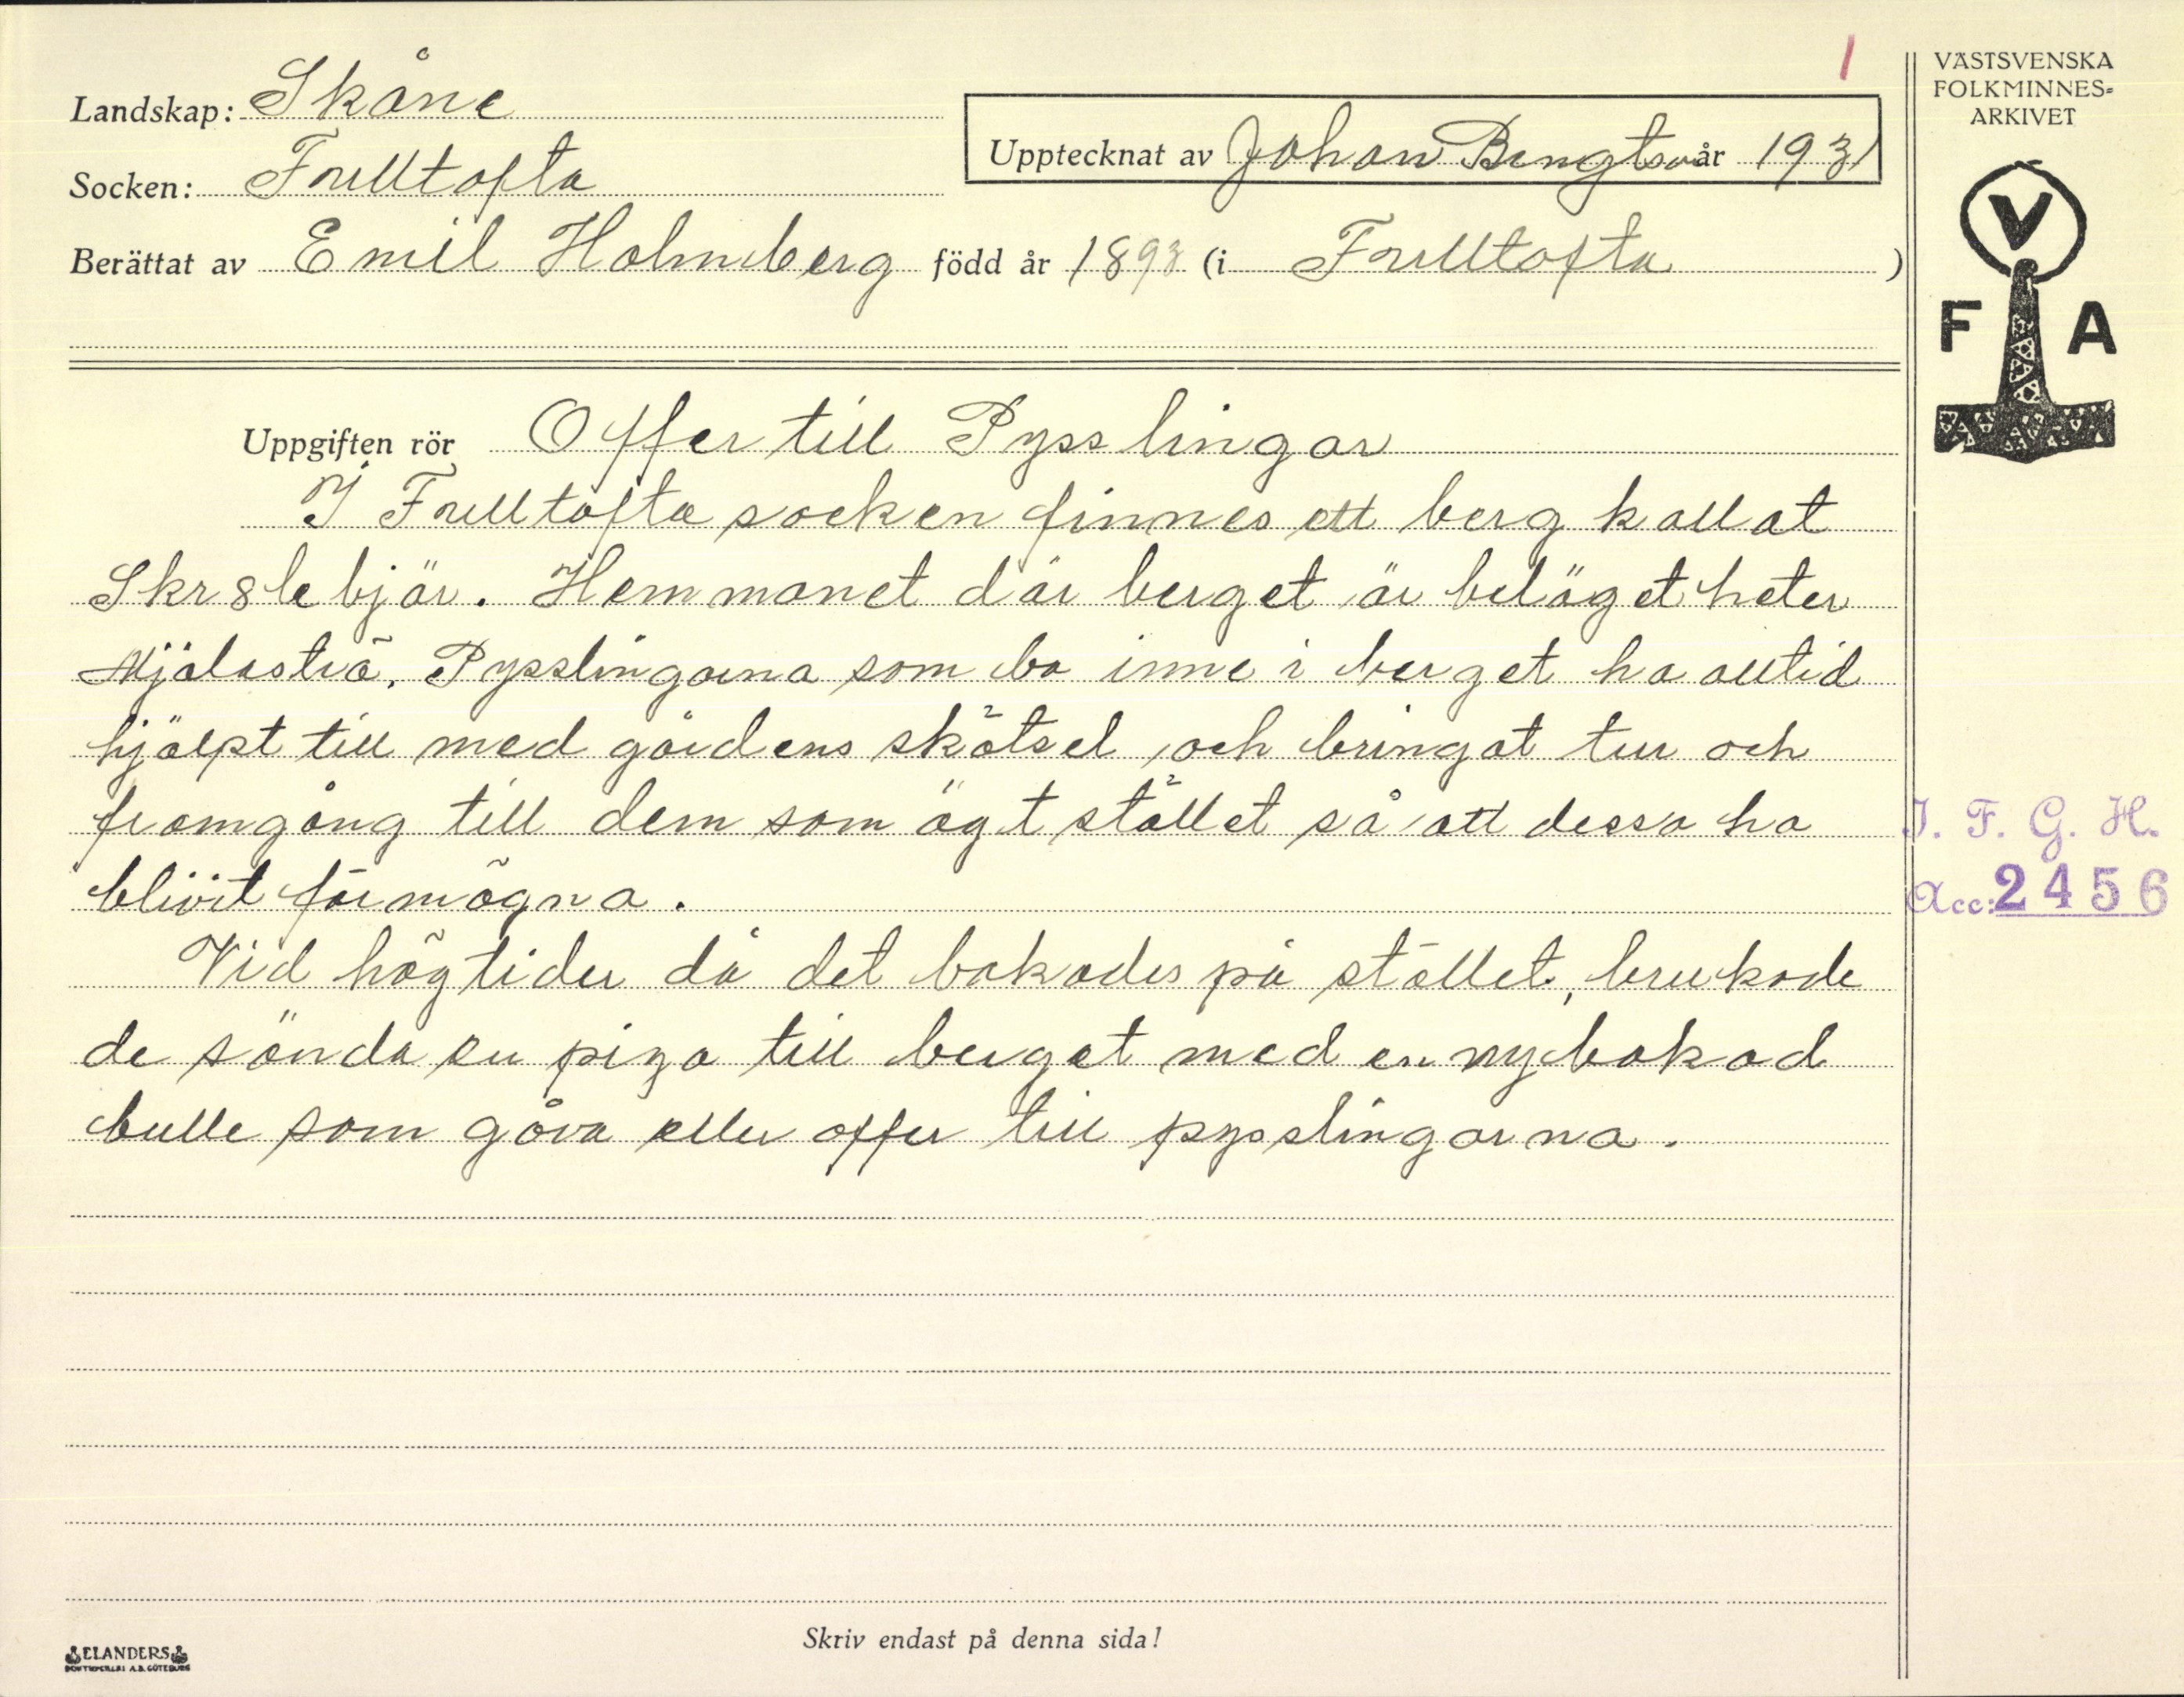 1
VÄSTSVENSKA
FOLKMINNES=
ARKIVET
Landskap: Skåne
Upptecknat av Johan Bengtson år 1931
Socken: Fulltofta
Berättat av Emil Holmberg född år 1893 (i Fulltofta)
V
F A
Uppgiften rör Offer till Pysslingar
I Fulltofta socken finnes ett berg kallat
Skr8lebjär. Hemmanet där berget är beläget heter
Mjölasträ. Pysslingarna som bo inne i berget ha alltid
hjälpt till med gårdens skötsel och bringat tur och
framgång till dem som ägt stället så att dessa ha
blivit förmögna.
Vid högtider då det bakades på stället, brukade
de sända en piga till berget med en nybakad
bulle som gåva eller offer till pysslingarna.
I. F. G. H.
Acc: 2456
Skriv endast på denna sida!
ELANDERS